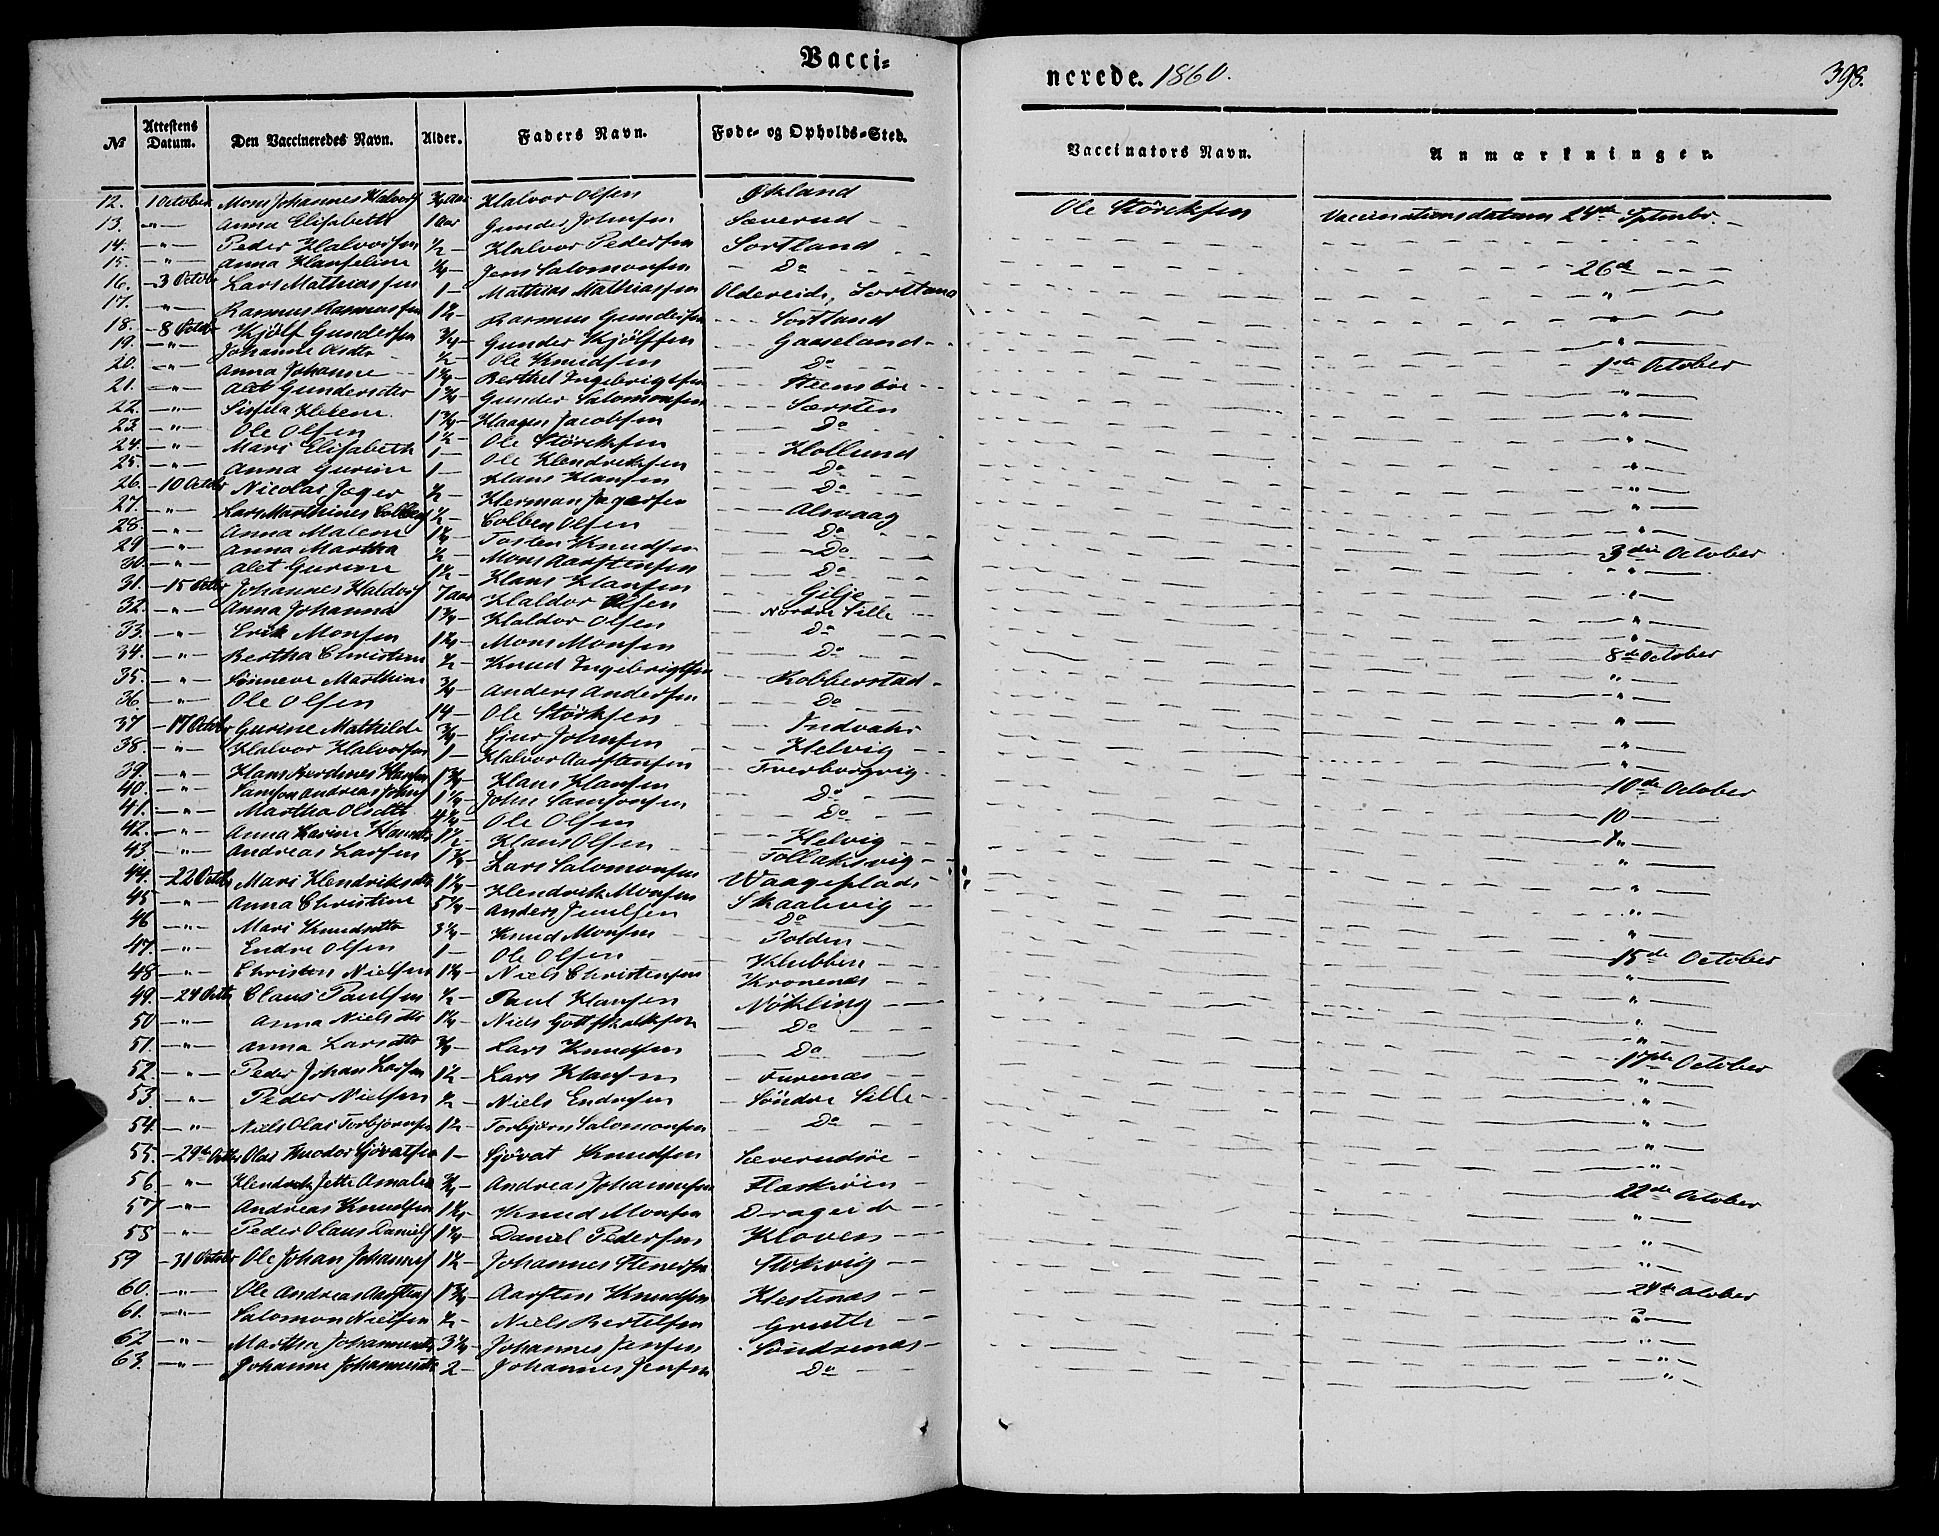 Vacci-
nerede. 1860.
398.
№ Attestens Datum. Den Vaccineredes Navn. Alder. Faders Navn. Føde- og Opholds-Sted. Vaccinators Navn. Anmærkninger.
12. 1 October Mons Johannes Halvors 3/4 Aar Halvor Olsen Økland Ole Störcksen Vaccinationsdatum 24de Septembr.
13. -"- Anna Elisabeth 1 Aar Gunder Johnsen Sæverud
14. -"- Peder Halvorsen 1/2 - Halvor Pedersen Sortland
15. -"- Anna Hanseline 3/4 - Jens Salomonsen Do 26de
16. - 3 Octobr Lars Mathiassen 1 - Mathias Mathiassen Oldereide, Sortland "
17. -"- Rasmus Rasmussen 1 1/2 - Rasmus Gundersen Sortland "
18. - 8 Octobr Kjölf Gundersen 3/4 - Gunder Kjölfsen Gaaseland "
19. -"- Johanne Olsdtr 1/2 - Ole Knudsen Do 1ste October
20. -"- Anna Johanne 1 1/4 - Berthel Ingebrigtsen Steensbøe "
21. -"- Alet Gundersdtr 1 3/4 - Gunder Salomonsen Særsten "
22. -"- Sissela Helene 1 3/4 - Haagen Jacobsen Do "
23. -"- Ole Olsen 1 1/2 - Ole Störcksen Hollund "
24. -"- Mari Elisabeth 1 - Ole Hendriksen Do "
25. -"- Anna Gurine 1 - Hans Hansen Do "
26. - 10 Octobr Nicolai Jæger 1/2 - Herman Jægersen Alsvaag "
27. -"- Lars Marthines Colbens 1/2 - Colben Olsen Do 3die October
28. -"- Anna Malene 1 1/4 - Tosten Knudsen Do "
29. -"- Anna Martha 1/2 - Mons Aarstensen Do "
30. -"- Alet Gurine 1 1/2 - Hans Hansen Gilje "
31. - 15 Octbr Johannes Haldors 7 Aar Haldor Olsen Nordre Lille "
32. -"- Anna Johanna 1 3/4 - Haldor Olsen Do 8de October
33. -"- Erik Monsen 1 1/4 - Mons Monsen Do "
34. -"- Bertha Christine 1/2 - Knud Ingebrigtsen Kobberstad "
35. -"- Sönneve Marthine 3/4 - Anders Andersen Do "
36. -"- Ole Olsen 14 - Ole Störksen Indvahr "
37. - 17 Octobr Gurine Mathilde 3/4 - Sjur Johnsen Helvig "
38. -"- Halvor Halvorsen 1 - Halvor Aarstensen Tverborgvig 10de October
39. -"- Hans Hansen 1 3/4 - Hans Hansen Do 10
40. -"- Samson Andreas Johns 1 1/4 - John Samsonsen Do "
41. -"- Martha Olsdtr 4 1/2 - Ole Olsen Helvig "
42. -"- Anna Karine Hansdtr 1 1/2 - Hans Olsen Tollaksvig "
43. -"- Andreas Larsen 1 3/4 - Lars Salomonsen Waagsplads "
44. - 22 Octobr Mari Hendriksdtr 1 1/4 - Hendrik Monsen Skaalevig "
45. -"- Anna Christine 5 1/4 - Anders Juulsen Do 15de October
46. -"- Mari Knudsdtr 3 1/4 - Knud Monsen Polden "
47. -"- Endre Olsen 1 - Ole Olsen Klubben "
48. -"- Christen Nielsen 1 1/4 - Niels Christensen Kronenæs "
49. - 24 Octbr Claus Paulsen 1/2 - Paul Hansen Nökling "
50. -"- Anna Nielsdtr 1 1/4 - Niels Gottskalksen Do 17de October
51. -"- Anna Larsdtr 3/4 - Lars Knudsen Do "
52. -"- Peder Johan Larsen 1 1/2 - Lars Hansen Furenæs "
53. -"- Peder Nielsen 1/2 - Niels Endresen Söndre Lille "
54. -"- Niels Olai Torbjørnsen 1 1/2 - Torbjörn Salomonsen Do "
55. - 29de Octbr Olai Theodor Sjövatsen 1 - Sjövat Knudsen Sæverudsöe 22de October
56. -"- Hendrik Jette Amalia 3/4 - Andreas Johannesen Flaskröen "
57. -"- Andreas Knudsen 1 1/4 - Knud Monsen Drageide "
58. -"- Peder Olaus Daniels 1 1/4 - Daniel Pedersen Kloven "
59. - 31 October Ole Johan Johannes 1 1/2 - Johannes Stenersen Stokvig 24de October
60. -"- Ole Andreas Aarstens 1 3/4 - Aarsten Knudsen Hestenæs "
61. -"- Salomon Nielsen 1/2 - Niels Bertelsen Grutle "
62. -"- Martha Johannesdtr 3 1/4 - Johannes Jensen Söndrenæs "
63. -"- Johanne Johannesdtr 2 - Johannes Jensen Do "